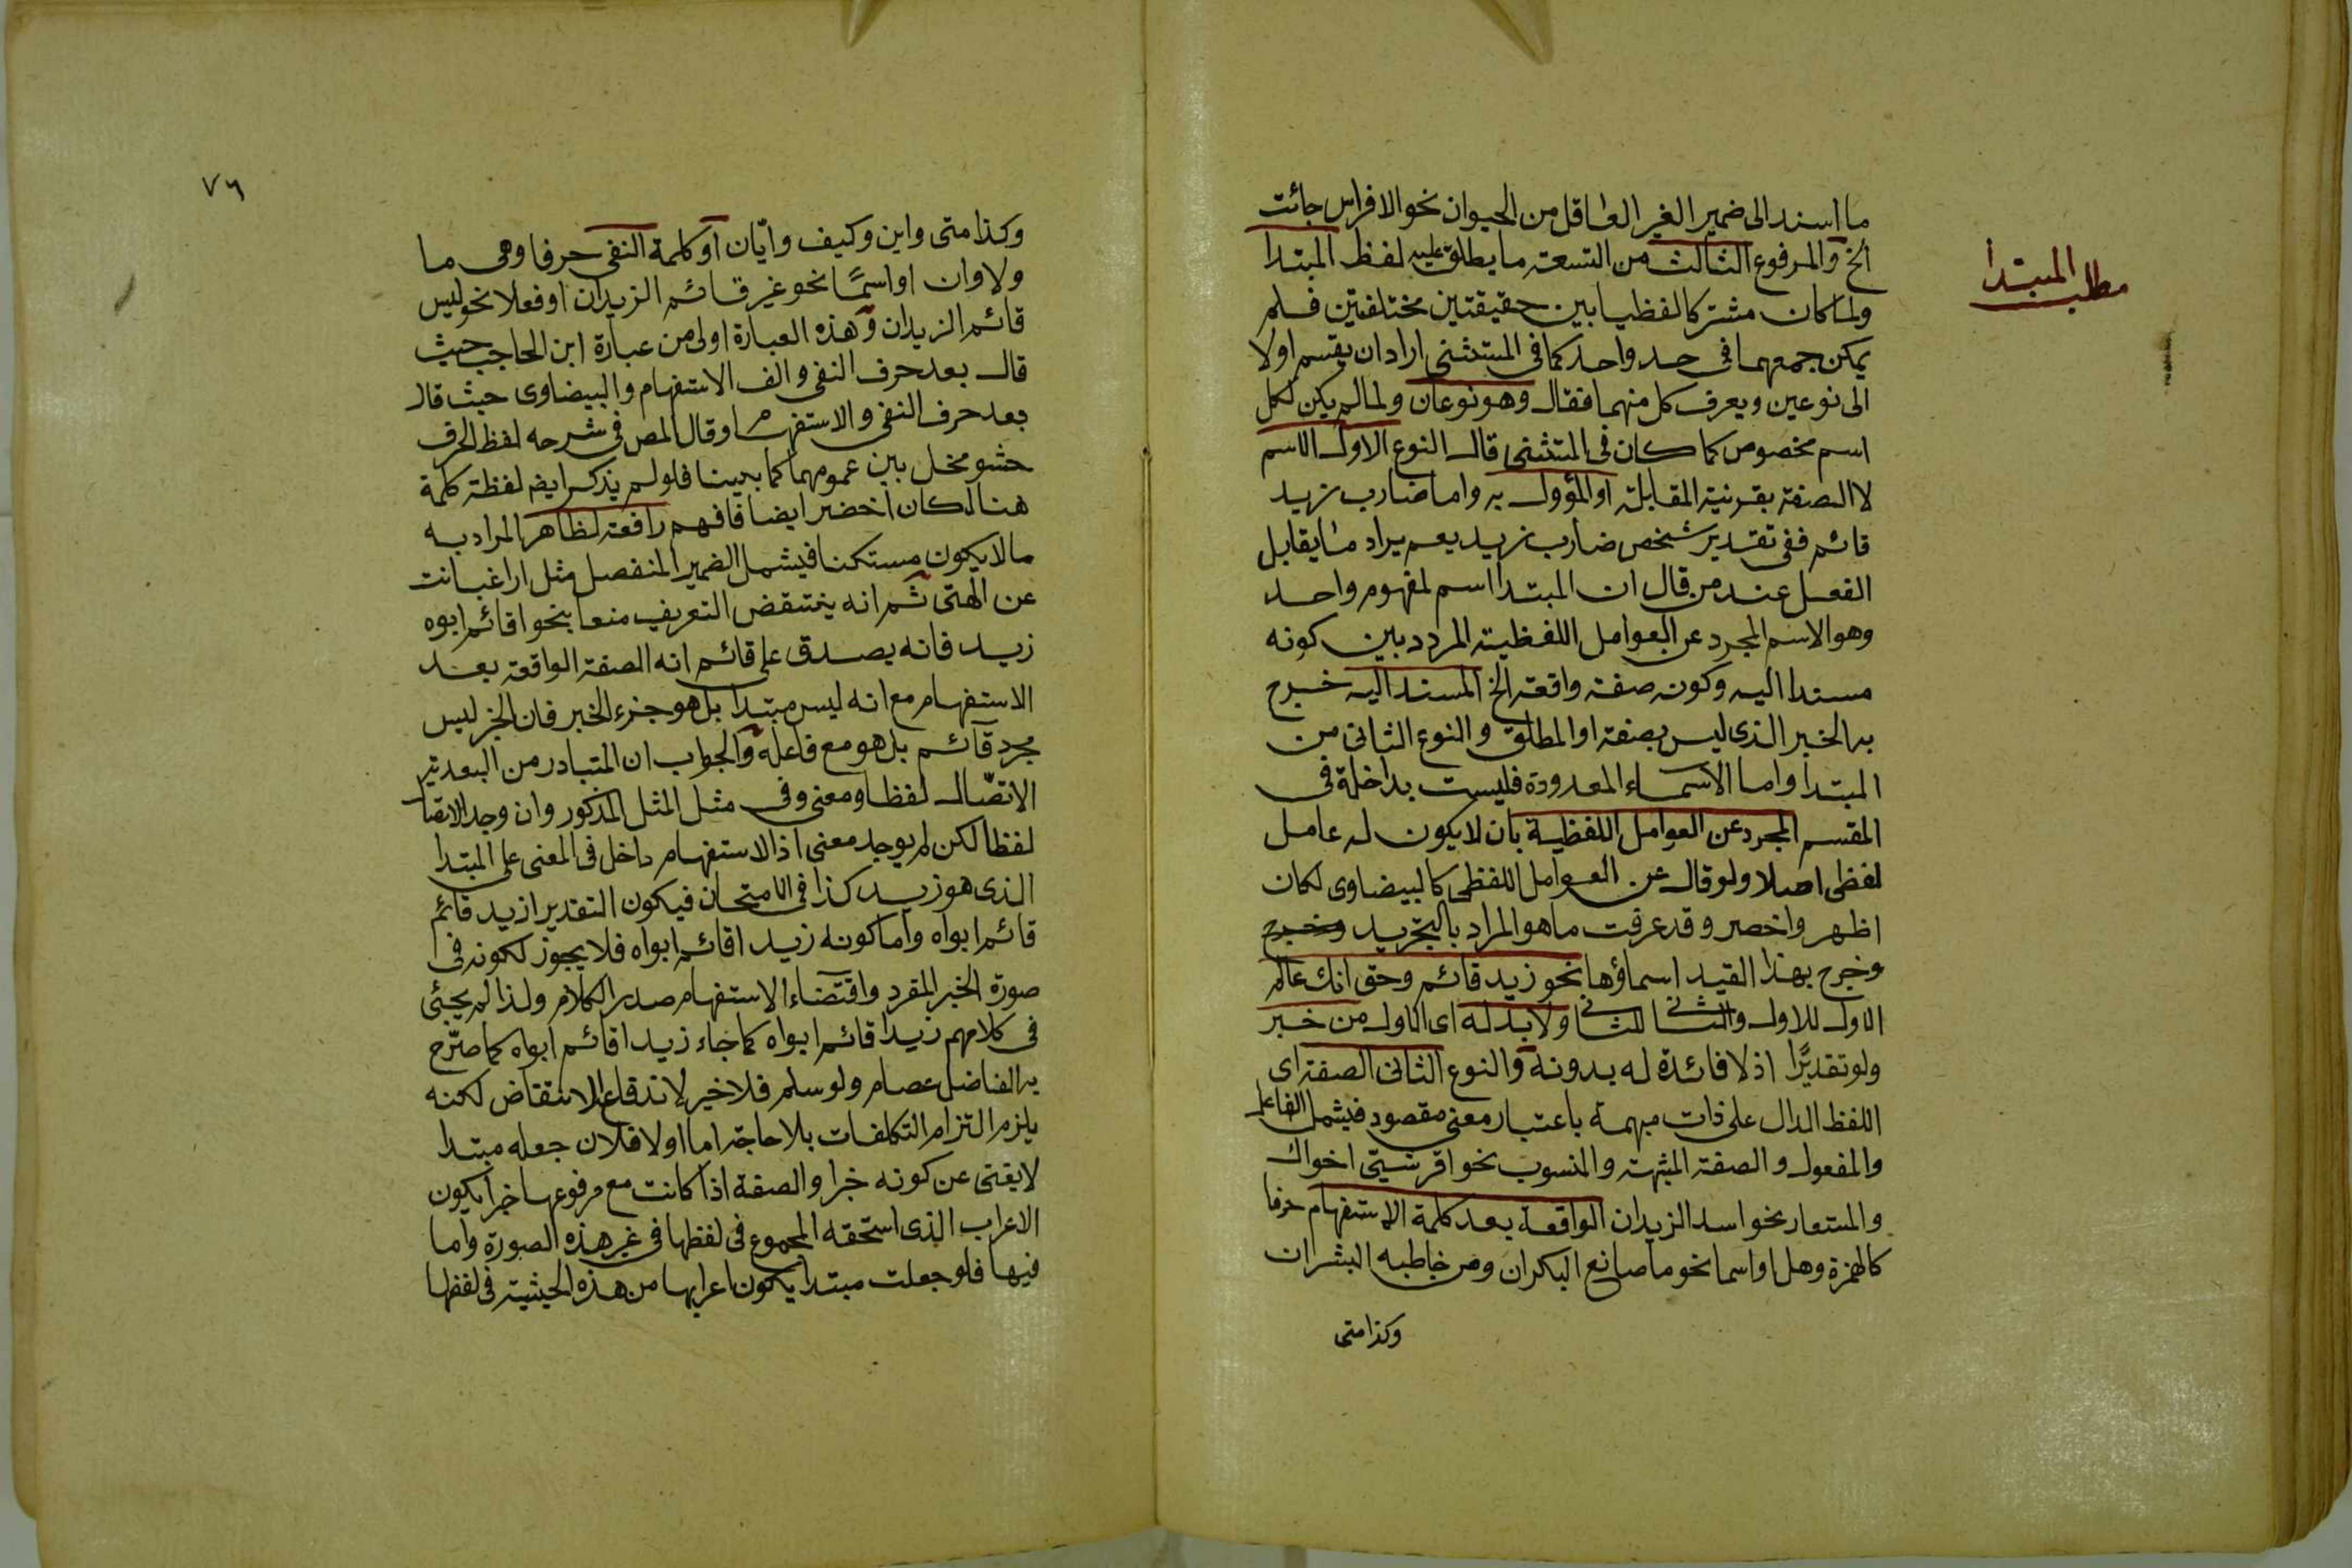 ما اسند الى ضمير الغير العاقل من الحيوان نحو الافراس جائت
مطلب المبتدا
الخ والمرفوع الثالث من التسعة ما يطلق عليه لفظ المبتدا
ولما كان مشتركا لفظيا بين حقيقتين مختلفتين فلم
يمكن جمعهما فى حد واحد كما فى المستثنى اراد ان يقسم اولا
الى نوعين ويعرف كل منهما فقال وهو نوعان ولما لم يكن لكل
اسم مخصوص كما كان فى المستثنى قال النوع الاول الاسم
لا الصفة بقرينة المقابلة او المؤول به واما ضارب زيد
قائم ففى تقدير شخص ضارب زيد يعم يراد ما يقابل
الفعل عند من قال ان المبتدا اسم لمفهوم واحد
وهو الاسم المجرد عن العوامل اللفظية المردد بين كونه
مسندا اليه وكونه صفة واقعة الخ المسند اليه خرج
به الخبر الذى ليس بصفة او المطلق والنوع الثانى من
المبتدا واما الاسماء المعدودة فليست بداخلة فى
المقسم المجرد عن العوامل اللفظية بان لا يكون له عامل
لفظى اصلا ولو قال عن العوامل اللفظى كالبيضاوى لكان
اظهر واخصر وقد عرفت ما هو المراد بالتجريد وخرج
وخرج بهذا القيد اسماؤها نحو زيد قائم وحق انك عالم
الاول للاول والثانى للثانى ولا بد له اى الاول من خبر
ولو تقديرًا اذ لا فائدة له بدونه والنوع الثانى الصفة اى
اللفظ الدال على ذات مبهمة باعتبار معنى مقصود فيشمل الفاعل
والمفعول والصفة المشبهة والمنسوب نحو اقرشىّ اخواك
والمستعار نحو اسد الزيدان الواقعة بعد كلمة الاستفهام حرفا
كالهمزة وهل او اسما نحو ما صانع البكران ومن خاطبه البشران
وكذا متى
٧٦
وكذا متى واين وكيف وايّان او كلمة النفى حرفا وهى ما
ولا وان او اسمًا نحو غير قائم الزيدان او فعلا نحو ليس
قائم الزيدان وهذه العبارة اولى من عبارة ابن الحاجب حيث
قال بعد حرف النفى والف الاستفهام والبيضاوى حيث قال
بعد حرف النفى والاستفهام وقال المص فى شرحه لفظ الحرف
حشو مخل بين عمومهما كما بينا فلو لم يذكر ايض لفظة كلمة
هنا لكان اخضر ايضا فافهم رافعة لظاهر المراد به
ما لا يكون مستكنا فيشمل الضمير المنفصل مثل اراغب انت
عن الهتى ثم انه ينتقض التعريف منعا بنحو اقائم ابوه
زيد فانه يصدق على قائم انه الصفة الواقعة بعد
الاستفهام مع انه ليس مبتدا بل هو جزء الخبر فان الخبر ليس
مجرد قائم بل هو مع فاعله والجواب ان المتبادر من البعدية
الاتصّال لفظا ومعنى وفى مثل المثل المذكور وان وجد الاتصا
لفظا لكن لم يوجد معنى اذ الاستفهام داخل فى المعنى على المبتدا
الذى هو زيد كذا فى الامتحان فيكون التقدير ازيد قائم
قائم ابواه واما كونه زيد اقائم ابواه فلا يجوز لكونه فى
صورة الخبر المفرد واقتضاء الاستفهام صدر الكلام ولذا لم يجئ
فى كلامهم زيدا قائم ابواه كما جاء زيد اقائم ابواه كما صرّح
به الفاضل عصام ولو سلم فلا خير لاندفاع الانتقاض لكنه
يلزم التزام التكلفات بلا حاجة اما اولا فلان جعله مبتدا
لا يغنى عن كونه خبرا والصفة اذا كانت مع مرفوعها خبرا يكون
الاعراب الذى استحقه المجموع فى لفظها فى غير هذه الصورة واما
فيها فلو جعلت مبتدا يكون اعرابها من هذه الحيثية فى لفظها